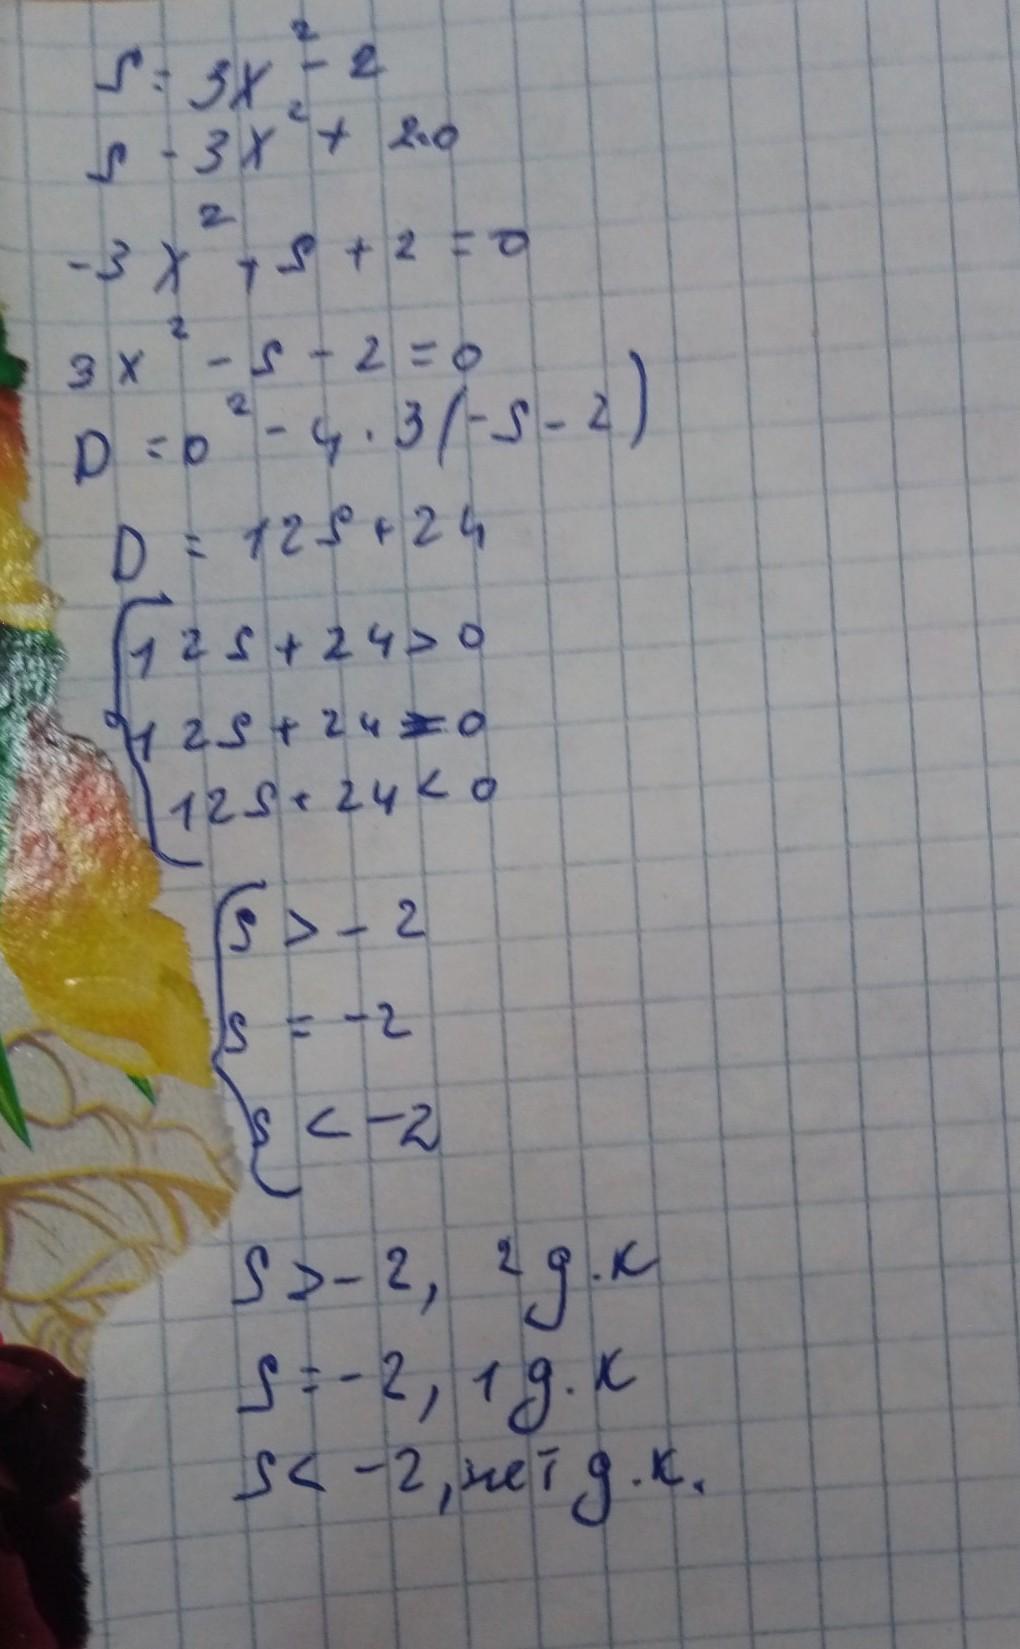 S = 3x² - 2
S - 3x² + 2=0
-3x² + S + 2 = 0
3x² - S - 2 = 0
D = 0² - 4 · 3(-S - 2)
D = 12S + 24
12S + 24 > 0
12S + 24 = 0
12S + 24 < 0
S > - 2
S = -2
S < -2
S > - 2, 2 д.к
S = - 2, 1 д.к
S < -2, нет д.к.